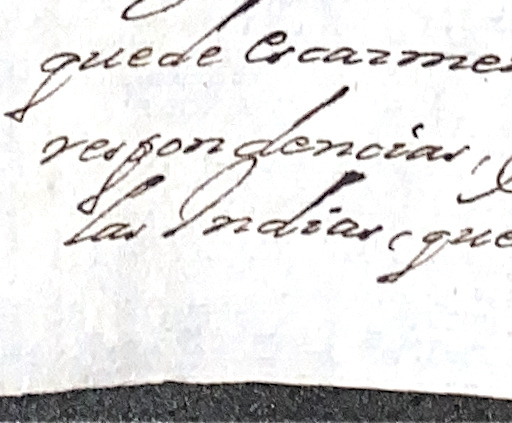 quede escarmen
respondencias,
las Indias, que